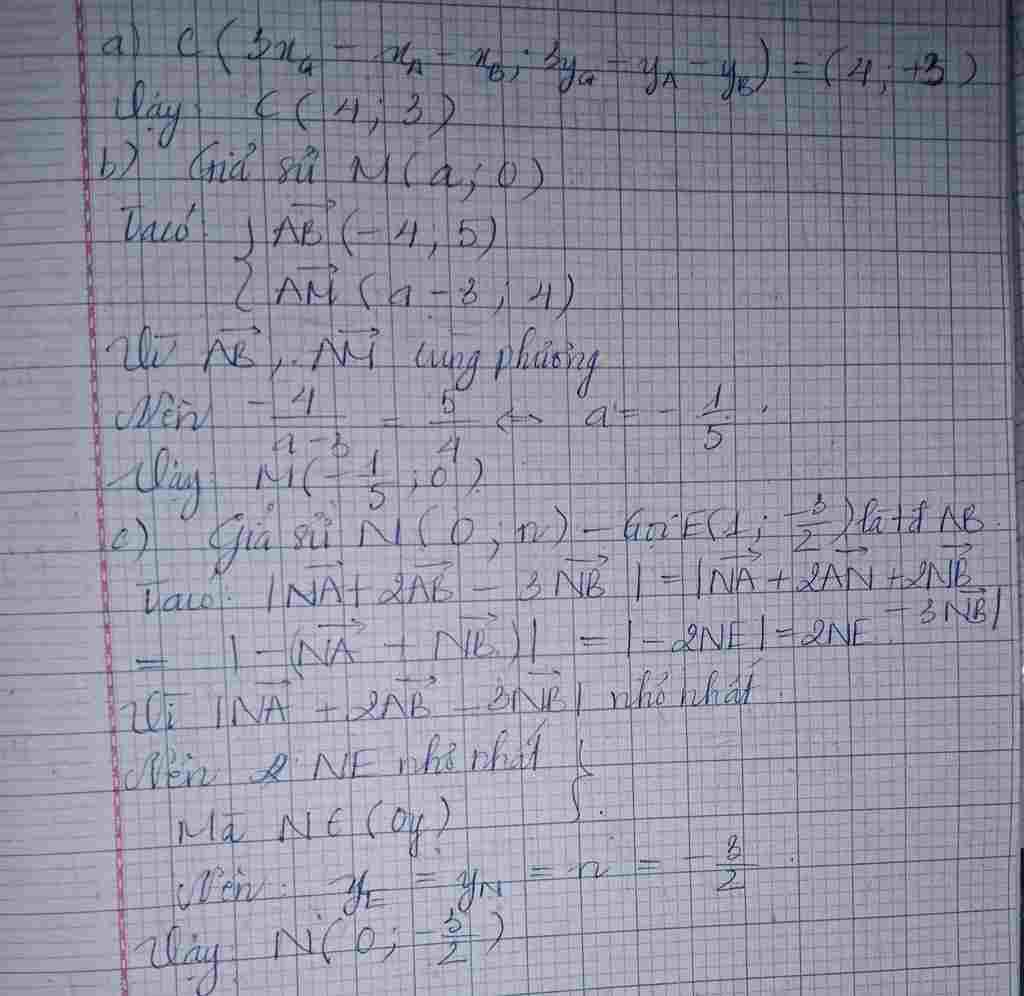 a) C (3x_G - x_A - x_B ; 3y_G - y_A - y_B) = (4 ; +3)
Vậy C (4 ; 3)
b) Giả sử M (a ; 0)
Ta có { AB (-4 ; 5)
{ AM (a - 3 ; 4)
Vì AB , AM cùng phương
Nên -4/(a-3) = 5/4 ↔ a = -1/5 .
Vậy M (-1/5 ; 0)
c) Giả sử N (0 ; n) - Gọi E (1 ; -3/2) là tđ AB
Ta có: |NA + 2AB - 3NB| = |NA + 2AN + 2NB - 3NB|
= |-(NA + NB)| = |-2NE| = 2NE
Vì |NA + 2AB - 3NB| nhỏ nhất
Nên 2 NE nhỏ nhất }
Mà N ∈ (Oy)
Nên y_E = y_N = n = -3/2 .
Vậy N (0 ; -3/2)